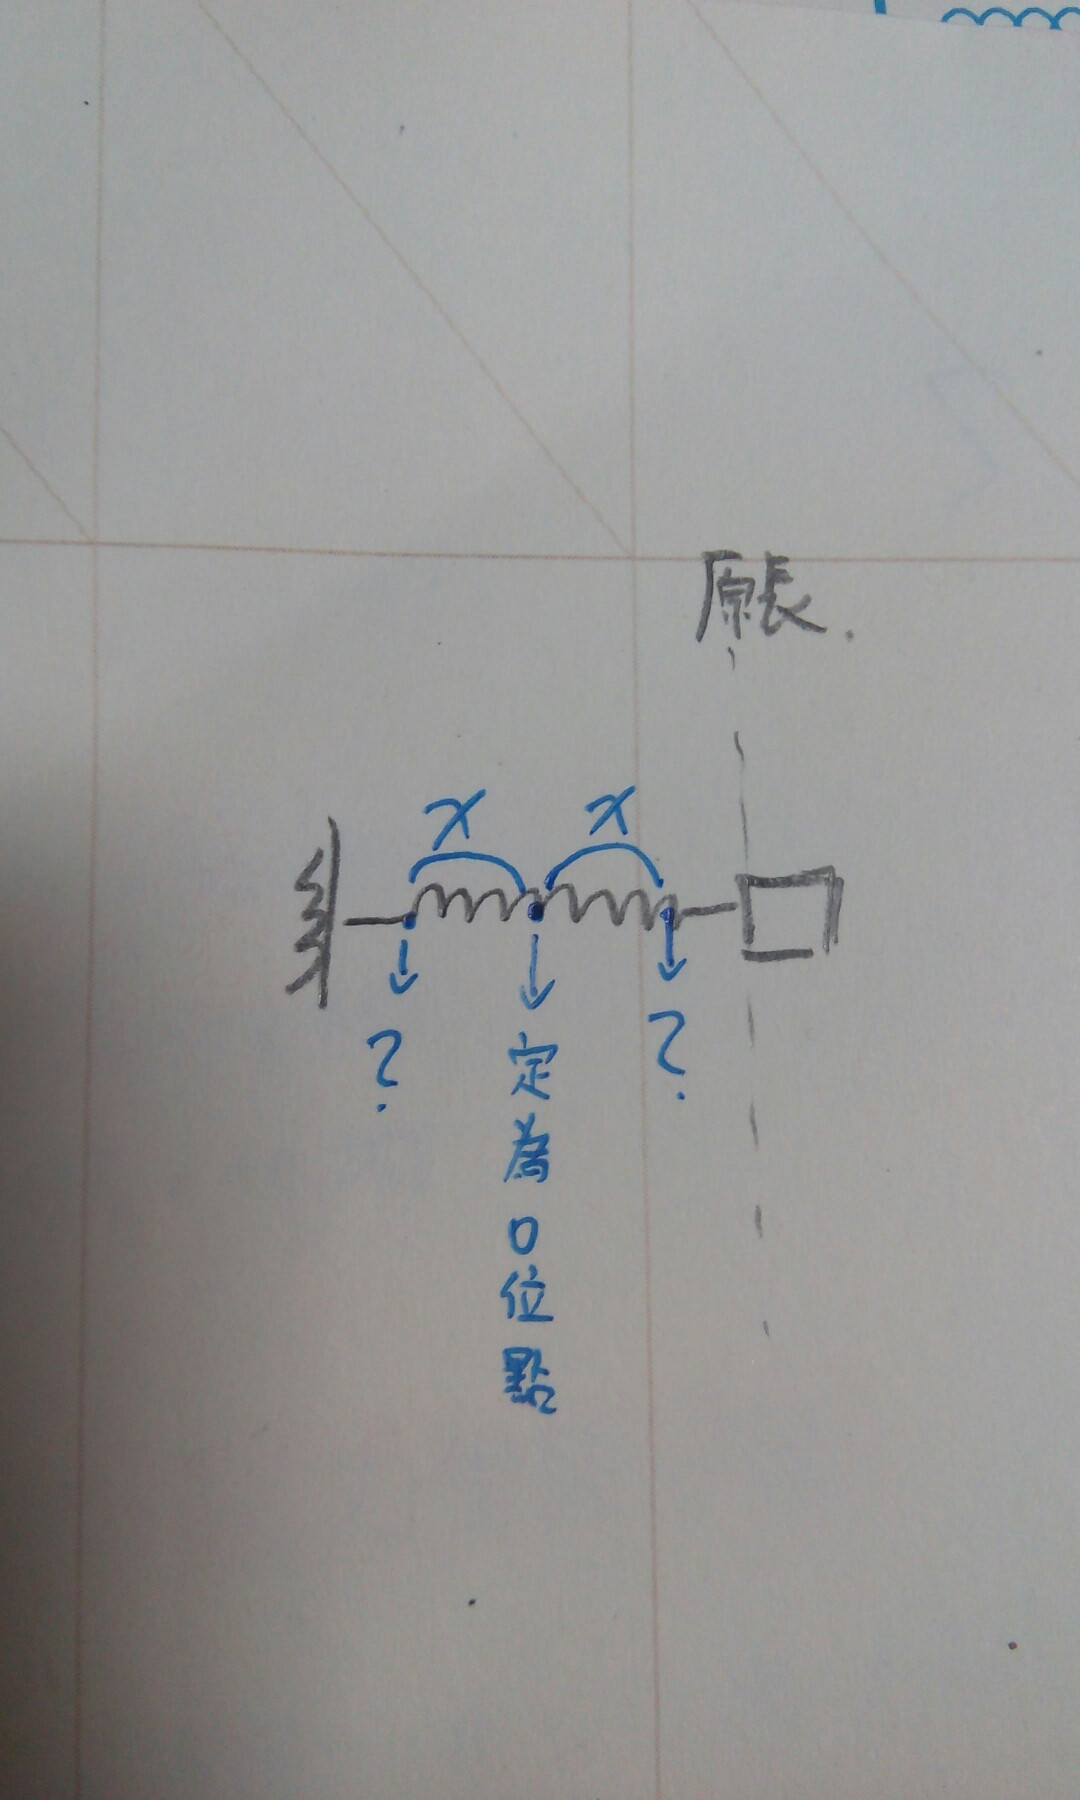 原長.
x x
? 定為0位點 ?